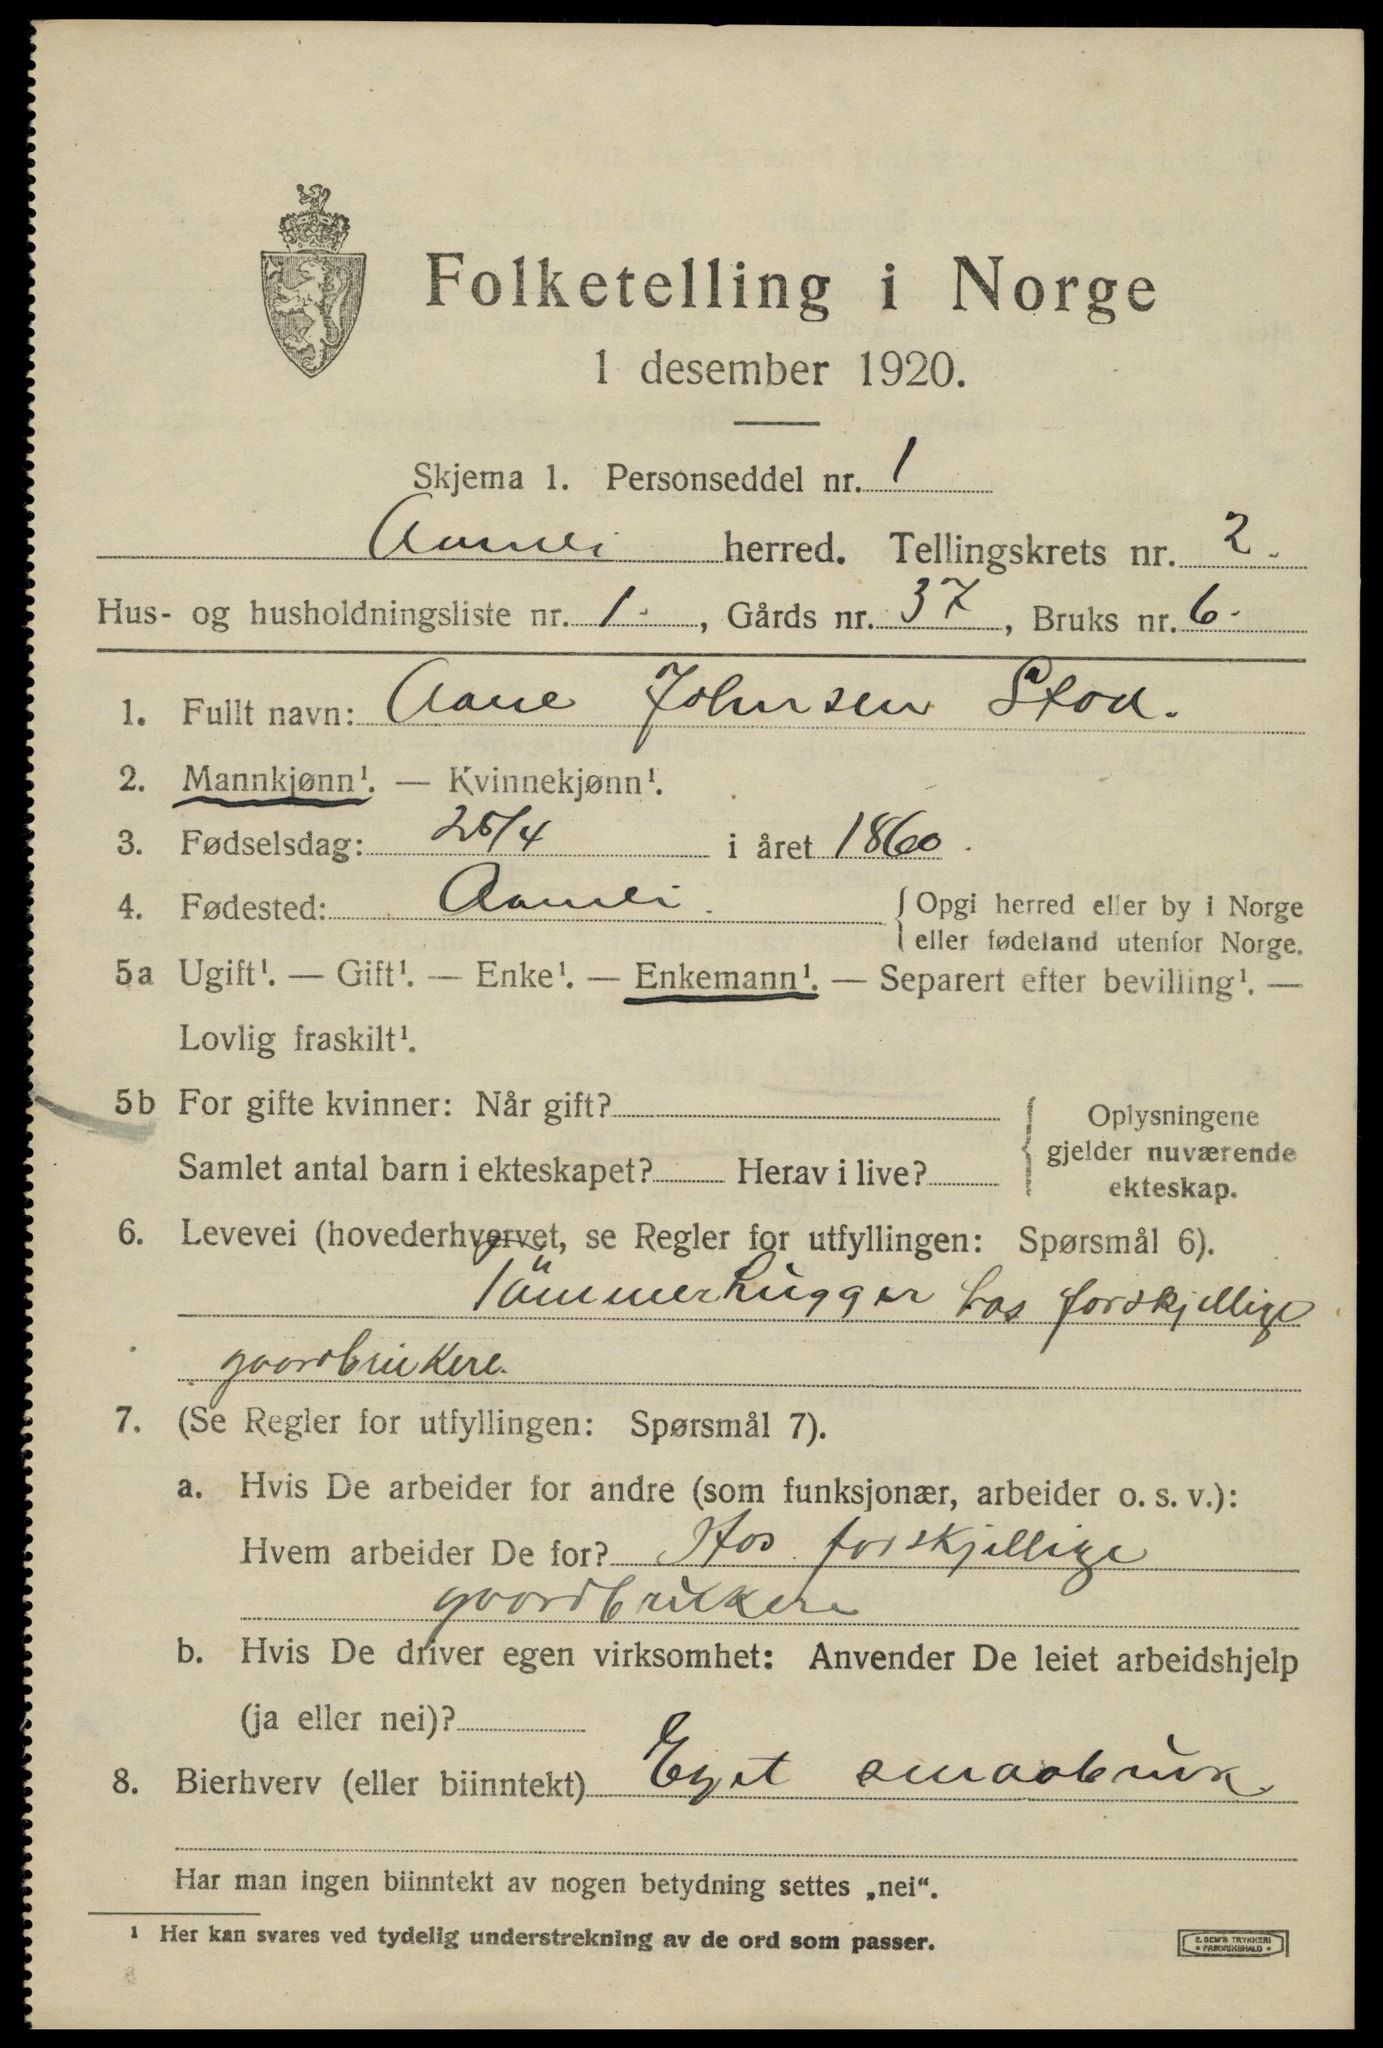 Folketelling i Norge
1 desember 1920.
Skjema 1. Personseddel nr. 1
Aamli herred. Tellingskrets nr. 2.
Hus- og husholdningsliste nr. 1. , Gårds nr. 37 , Bruks nr. 6.
1. Fullt navn: Johnsen
2. Mannkjønn¹. — Kvinnekjønn¹.
3. Fødselsdag: 25/4 i året 1860.
4. Fødested: Aamli. { Opgi herred eller by i Norge
eller fødeland utenfor Norge.
5a Ugift¹. — Gift¹. — Enke¹. — Enkemann¹. — Separert efter bevilling¹. —
Lovlig fraskilt¹.
5b For gifte kvinner: Når gift? { Oplysningene
gjelder nuværende
Samlet antal barn i ekteskapet? Herav i live?
ekteskap.
6. Levevei (hovederhvervet, se Regler for utfyllingen: Spørsmål 6).
Tömmerhugger hos forskjellige
gaardbrukere.
7. (Se Regler for utfyllingen: Spørsmål 7).
a. Hvis De arbeider for andre (som funksjonær, arbeider o. s. v.):
Hvem arbeider De for? Hos forskjellige
gaardbrukere
b. Hvis De driver egen virksomhet: Anvender De leiet arbeidshjelp
(ja eller nei)?
8. Bierhverv (eller biinntekt) Eget smaabruk.
Har man ingen biinntekt av nogen betydning settes „nei“.
¹ Her kan svares ved tydelig understrekning av de ord som passer.
E. SEM'S TRYKKERI
* FREDRIKSHALD *